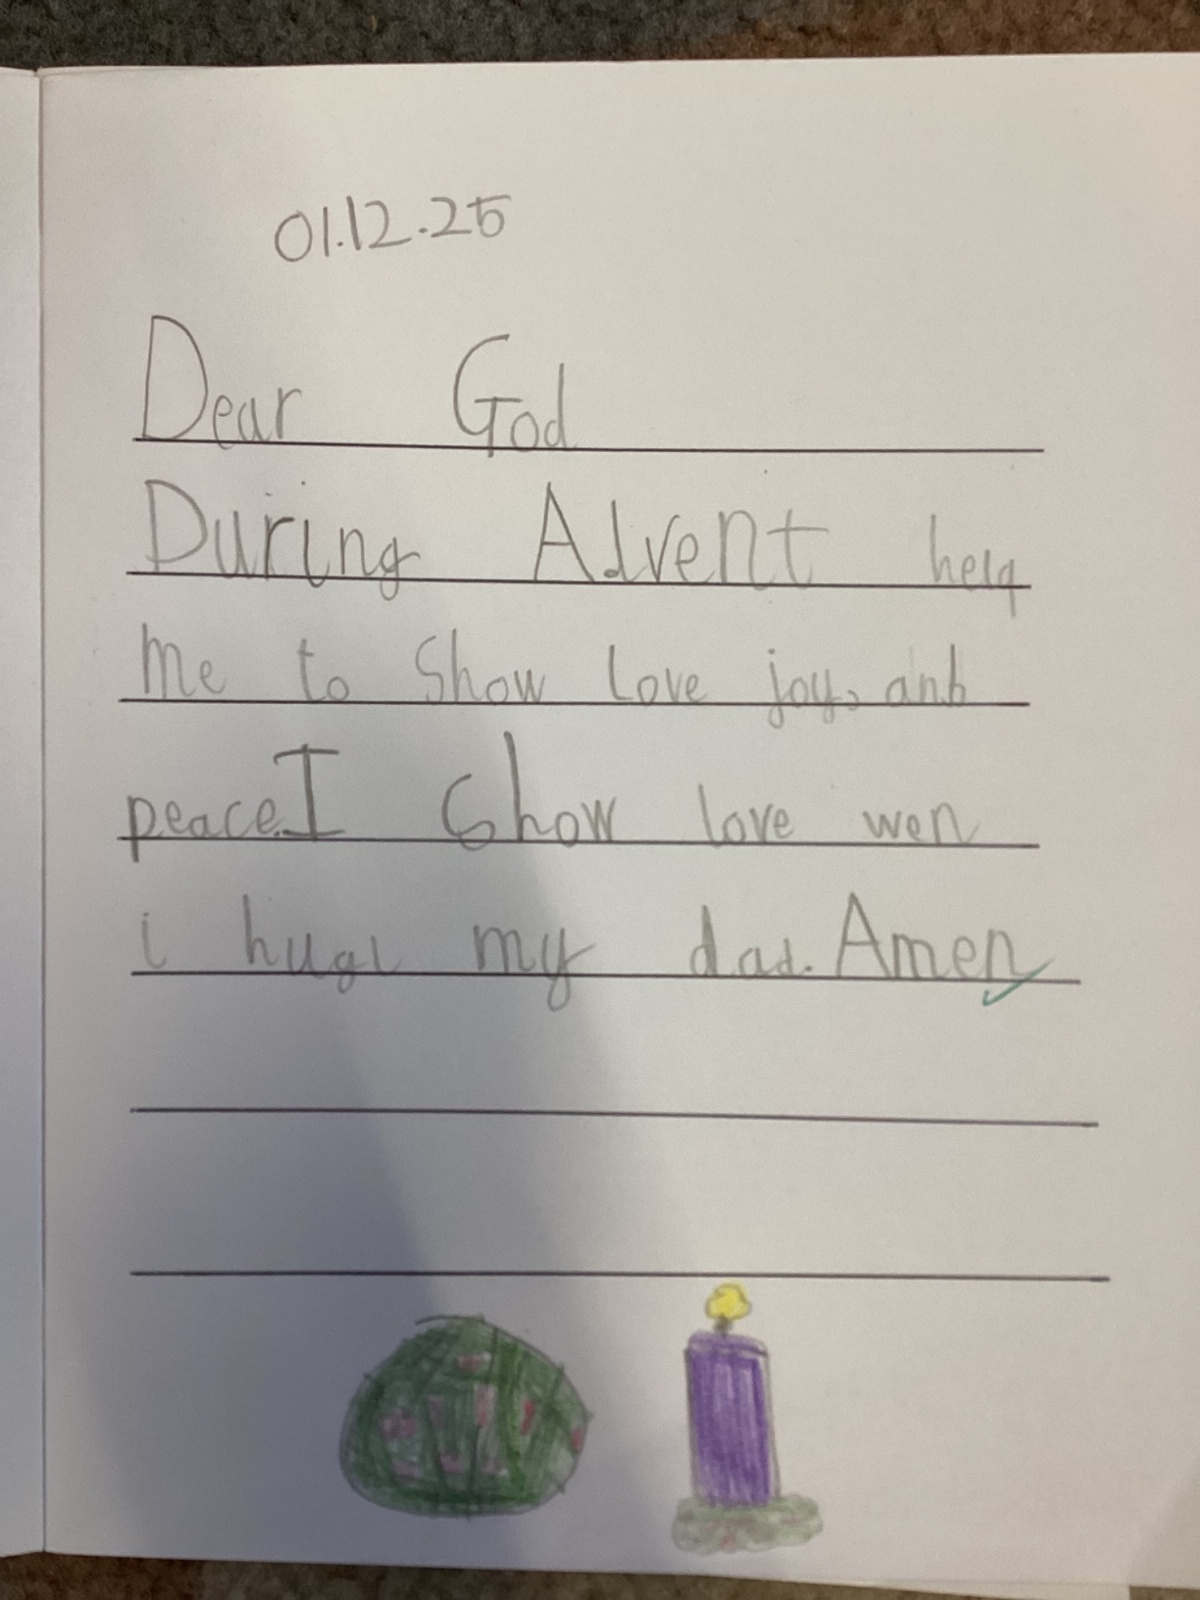 01.12.25
Dear God
During Advent help
me to show love joy, anb
peace. I show love wen
i hugi my dad. Amen